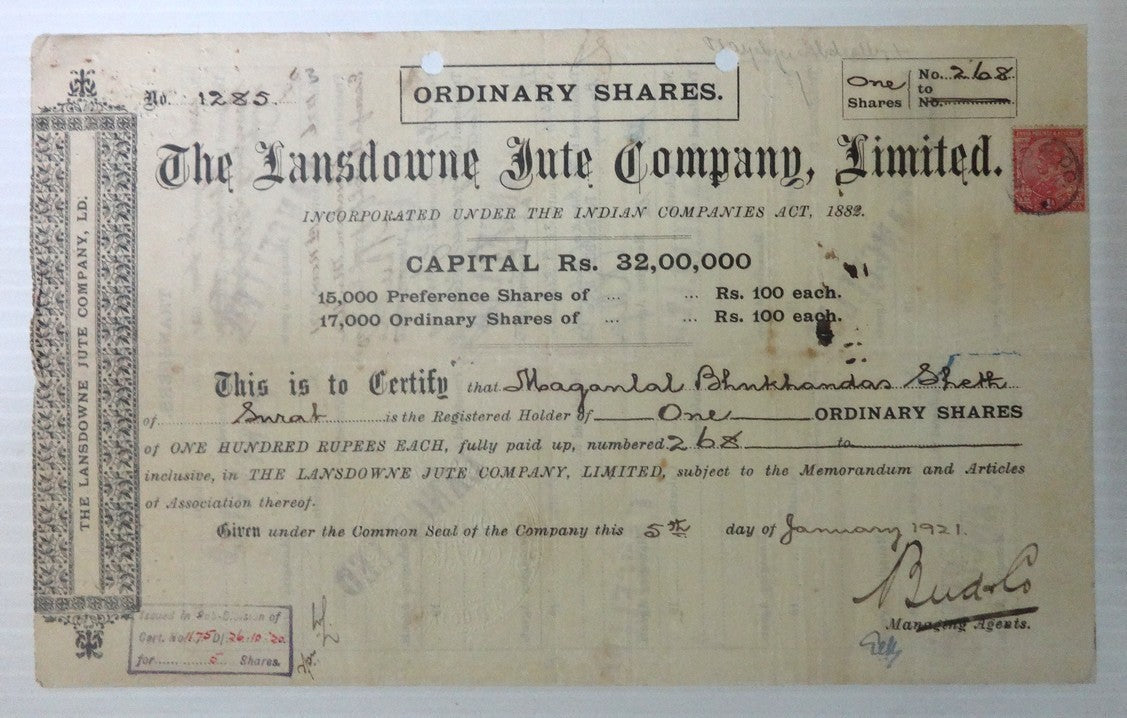 No. 1285.
ORDINARY SHARES.
One Shares
No. 268
to
No.
The Lansdowne Jute Company, Limited.
INCORPORATED UNDER THE INDIAN COMPANIES ACT, 1882.
CAPITAL Rs. 32,00,000
15,000 Preference Shares of ... ... Rs. 100 each.
17,000 Ordinary Shares of ... ... Rs. 100 each.
This is to Certify that Maganlal Bhukhandas Sheth
of Surat is the Registered Holder of One ORDINARY SHARES
of ONE HUNDRED RUPEES EACH, fully paid up, numbered 268 to
inclusive, in THE LANSDOWNE JUTE COMPANY, LIMITED, subject to the Memorandum and Articles
of Association thereof.
Given under the Common Seal of the Company this 5th day of January 1921.
Bird & Co
Managing Agents.
Issued in Sub-Division of
Cert. No 1175 D/ 26-10-20
for 5 Shares.
THE LANSDOWNE JUTE COMPANY, LD.